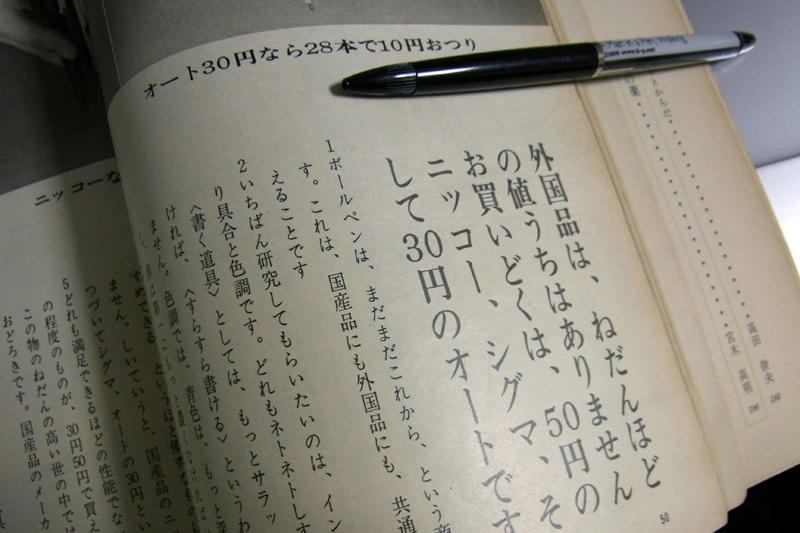 オート30円なら28本で10円おつり
外国品は、ねだんほど
の値うちはありません
お買いどくは、50円の
ニッコー、シグマ、そ
して30円のオートです
1ボールペンは、まだまだこれから、という商
す。これは、国産品にも外国品にも、共通
えることです
2いちばん研究してもらいたいのは、イン
り具合と色調です。どれもネトネトしす
〈書く道具〉としては、もっとサラッ
ければ、〈すらすら書ける〉というわ
ません。色調では、青色は、もっと深
すめできる
ません。しいていうと、国産品のニ
つづいてシグマ、オートの30円とい
5どれも満足できるほどの性能でな
の程度のものが、30円50円で買え
この物のねだんの高い世の中では
おどろきです。国産品のメーカ
ニッコーな
とからだ
の薬
高田 俊夫
宮木 高明
50